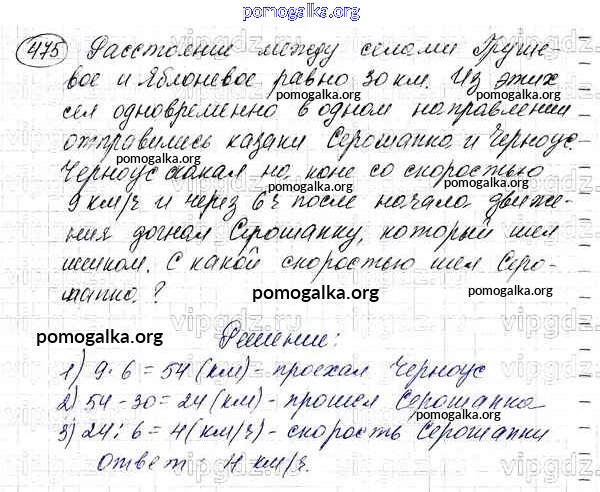 pomogalka.org
475 Расстояние между селами Груше-
вое и Яблоневое равно 30 км. Из этих
pomogalka.org pomogalka.org
сел одновременно в одном направлении
отправились казаки Серошапка и Черноус.
pomogalka.org pomogalka.org
Черноус скакал на коне со скоростью
9 км/ч и через 6 ч после начала движе-
pomogalka.org pomogalka.org
ния догнал Серошапку, который шел
пешком. С какой скоростью шел Серо-
шапка?
pomogalka.org pomogalka.org
pomogalka.org
Решение:
1) 9·6=54 (км) - проехал Черноус
2) 54-30=24 (км) - прошел Серошапка
pomogalka.org pomogalka.org
3) 24:6=4 (км/ч) - скорость Серошапки
Ответ: 4 км/ч.